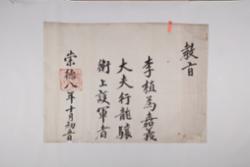 教旨
李植爲嘉義
大夫行龍驤
衛上護軍者
崇德八年十月初一日